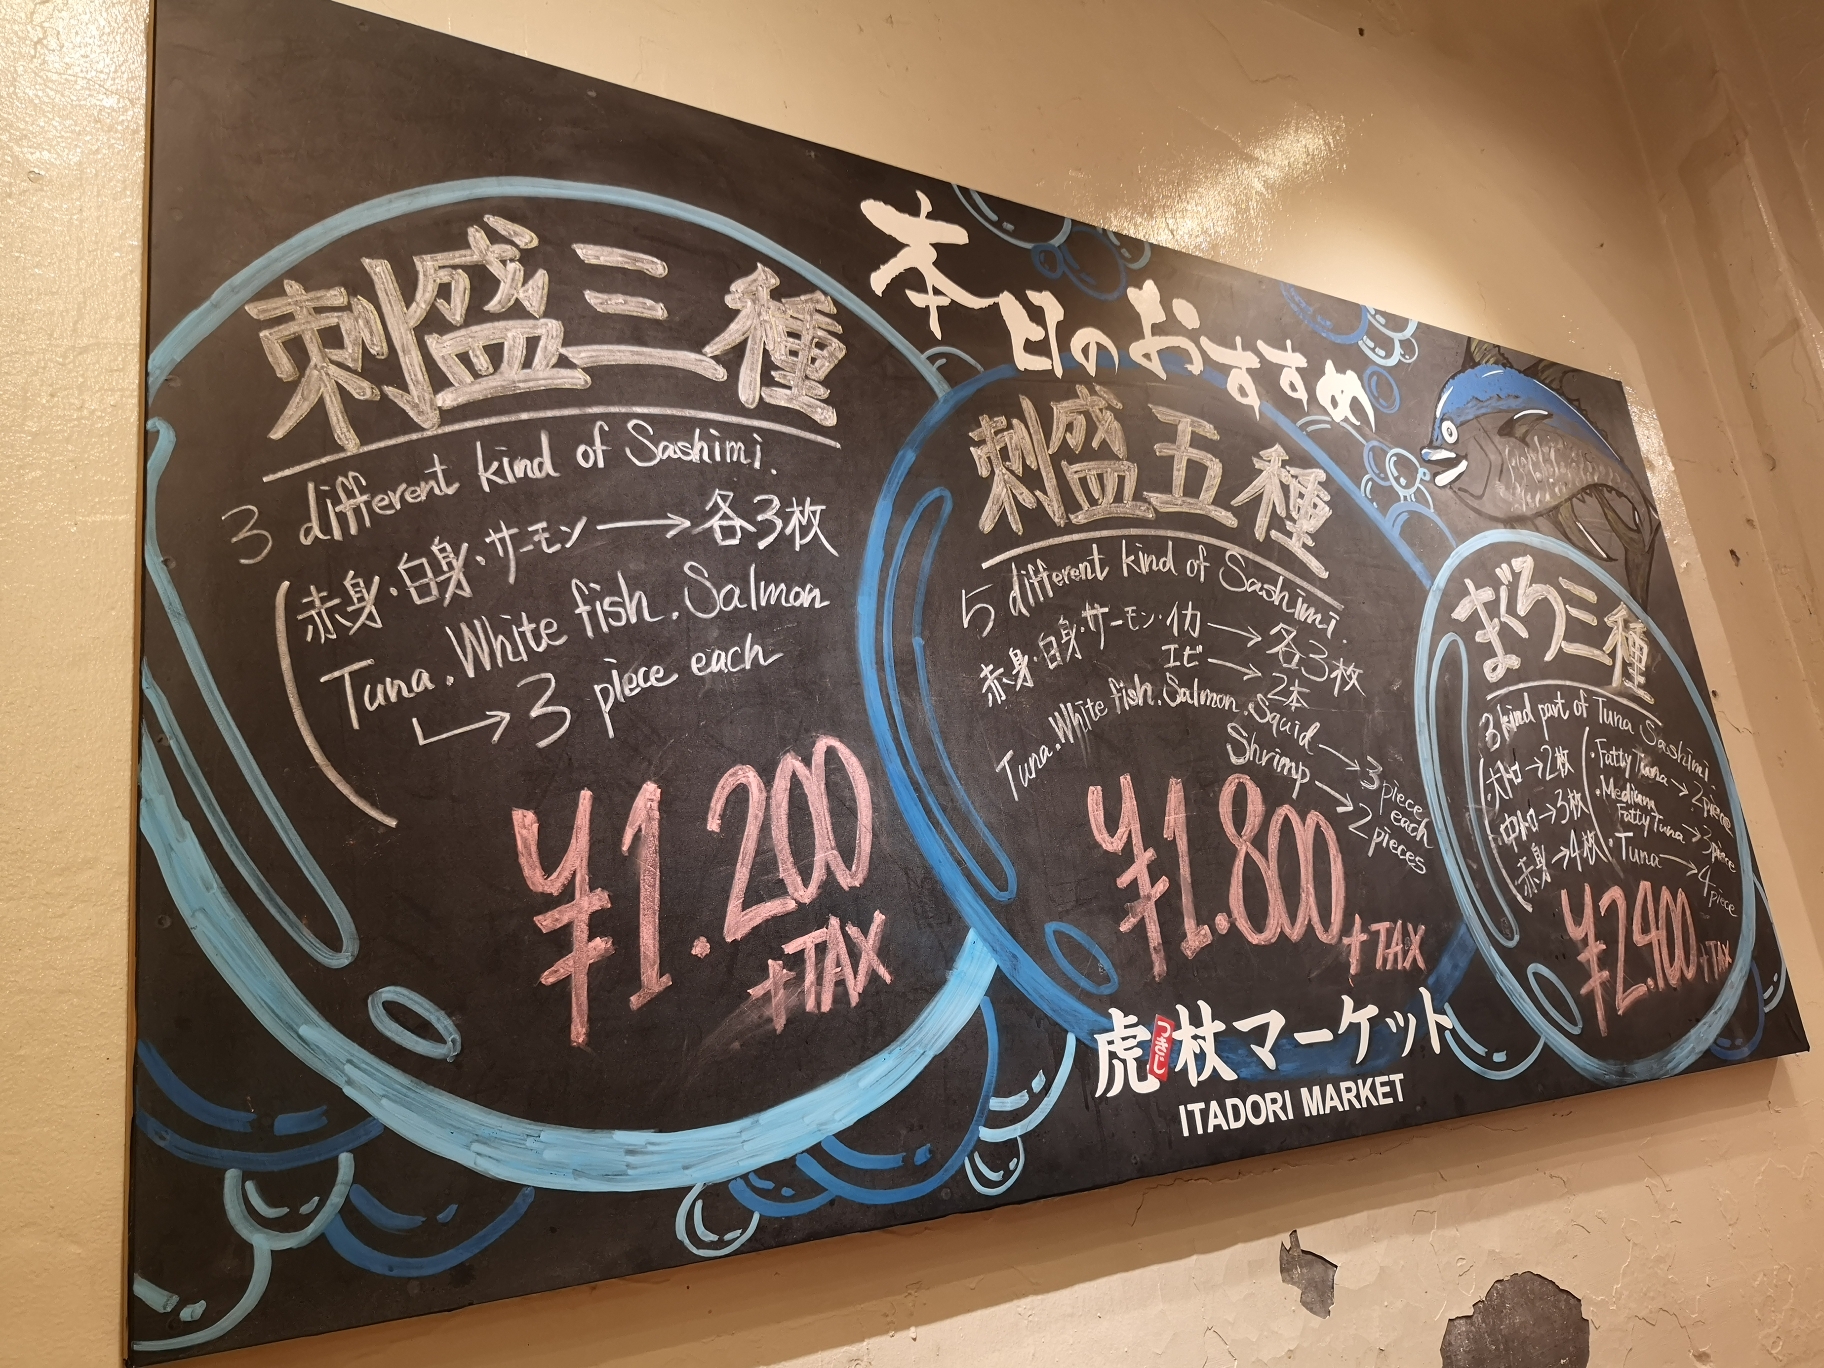 本日のおすすめ
刺盛三種
3 different kind of Sashimi.
赤身・白身・サーモン→各3枚
Tuna. White fish. Salmon
↳3 piece each
¥1.200
+TAX
刺盛五種
5 different kind of Sashimi.
赤身・白身・サーモン・イカ→各3枚
エビ→2本
Tuna. White fish. Salmon. Squid→3 piece each
Shrimp→2 pieces
¥1.800
+TAX
まぐろ三種
3 kind part of Tuna Sashimi
・大トロ→2枚
・中トロ→3枚
・赤身→4枚
・Fatty Tuna→2 piece
・Medium Fatty Tuna→3 piece
・Tuna→4 piece
¥2.400
+TAX
虎杖マーケット
ITADORI MARKET